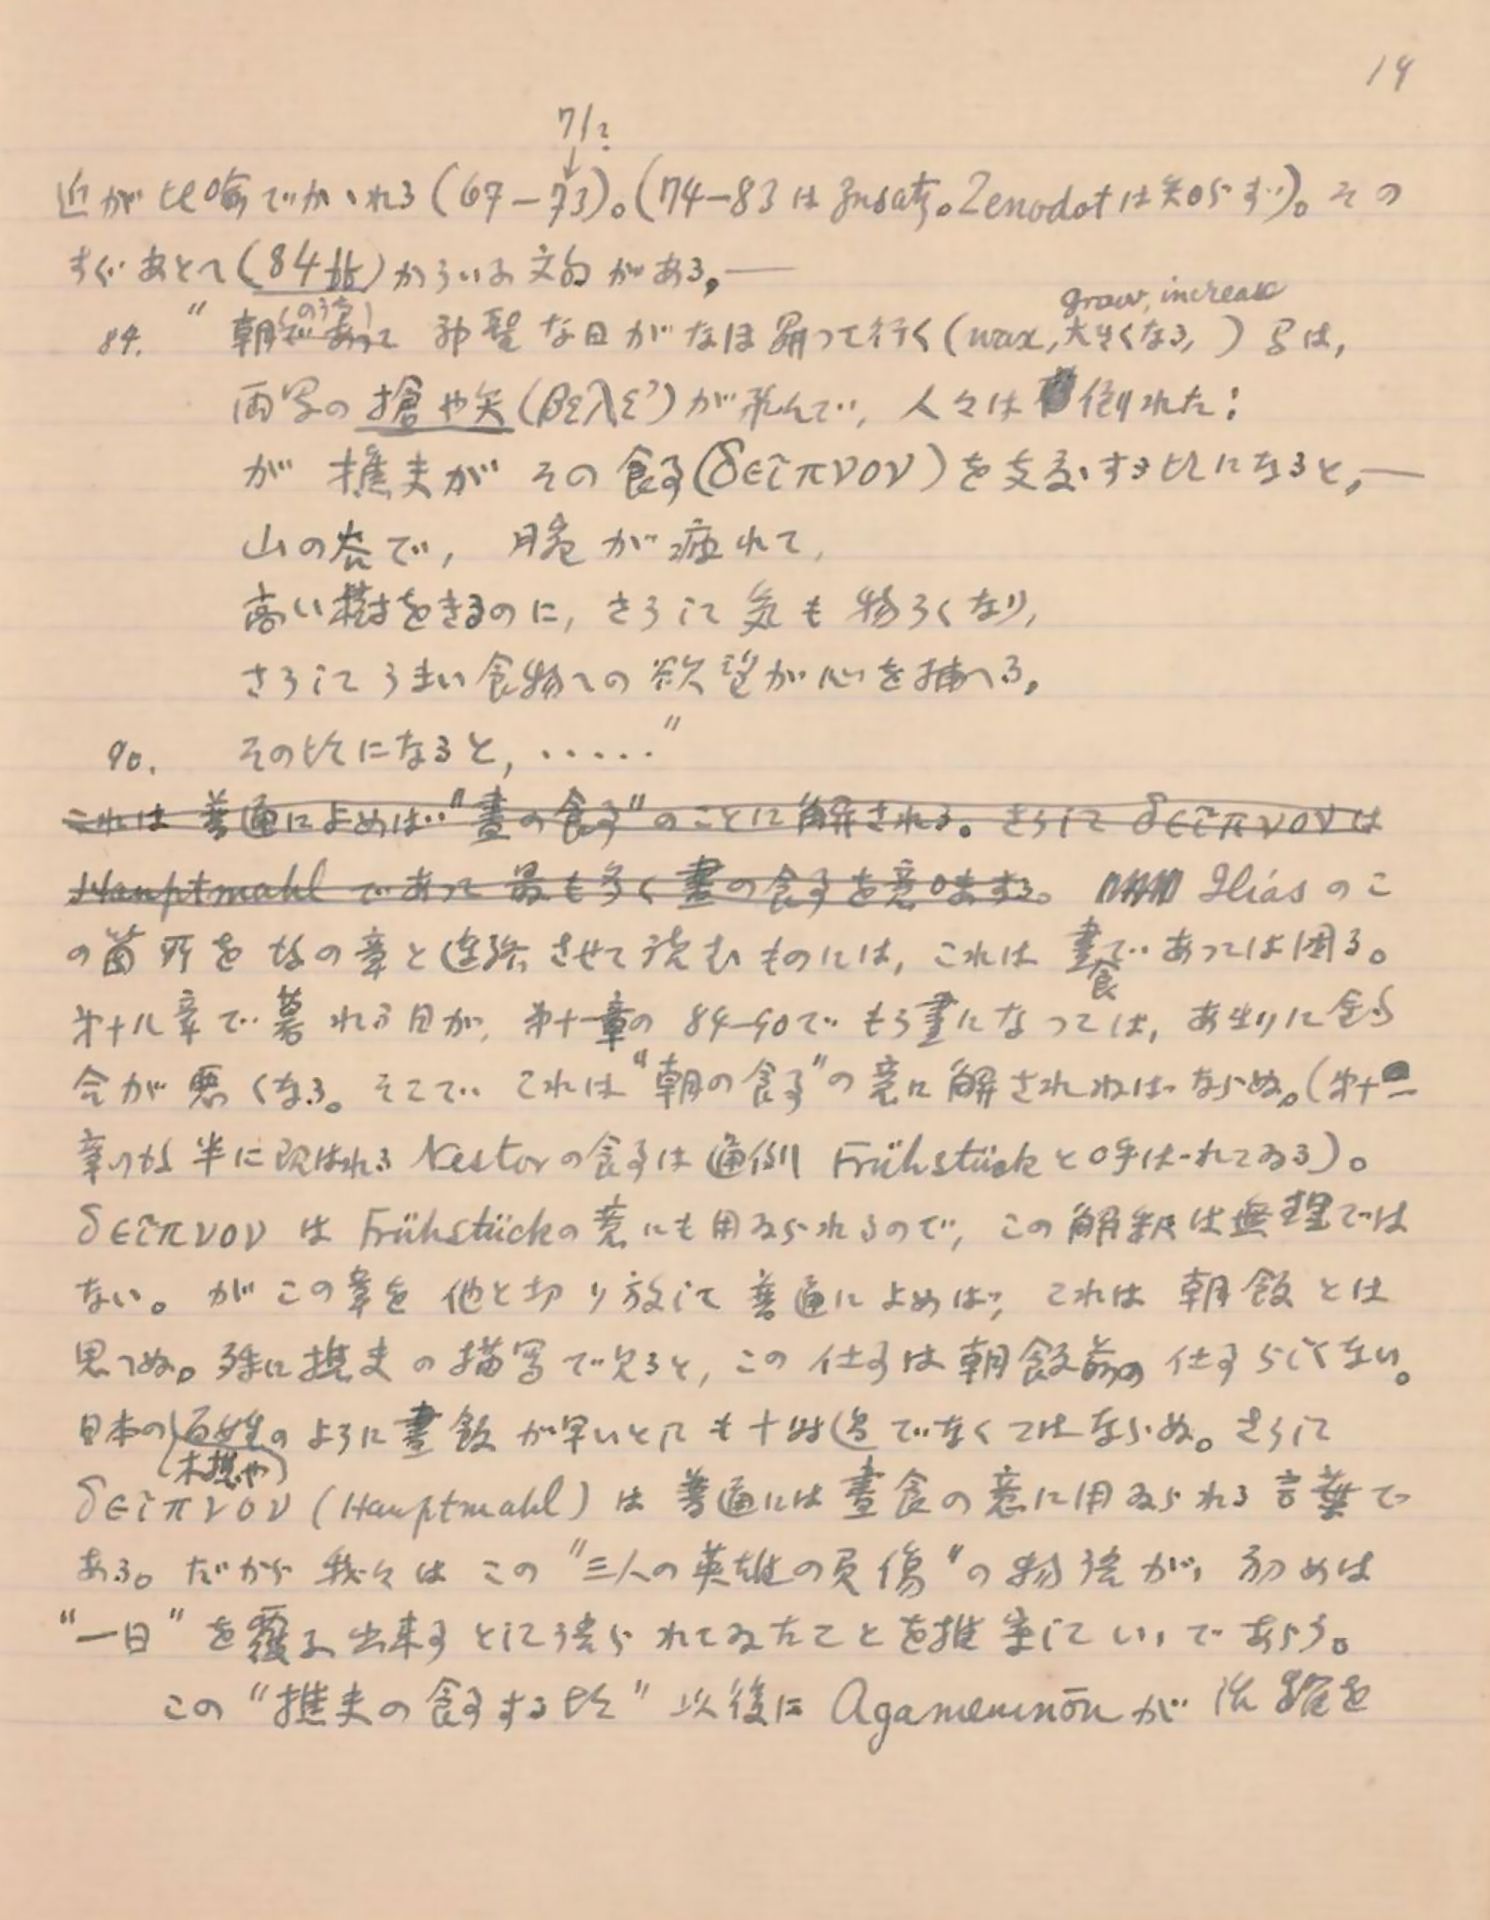 14
71?
↓
近が比喩でかゝれる(67–73)。(74–83はZusatz。Zenodotは知らず)。その
すぐあとへ(84ff)かういふ文句がある,—
grow, increase
(のうち)
84. "朝であって 神聖な日がなほ 昇って行く(wax, 大きくなる, )間は,
両軍の 槍や矢(βέλεα)が飛んで, 人々は 倒れた:
が 樵夫が その食事(δεῖπνον)を支度する比になると,—
山の谷で, 腕が疲れて,
高い樹をきるのに, さうして 気も 物うくなり,
さうして うまい食物への 欲望が心を捕へる,
90. その比になると, ・・・・・"
これは 普通によめば "晝の食事" のことに解される。さうして δεῖπνονは
Hauptmahl であって 最も多く 晝の食事を意味する。 Iliasのこ
の箇所を 他の章と連絡させて読むものには, これは 晝で あっては困る。
食
第十八章で暮れる日が, 第十一章の 84–90で もう晝になっては, あまりに都
合が悪くなる。そこで これは "朝の食事"の意に解されねばならぬ。(第十一
章の後半に現はれる Nestorの食事は 通例 Frühstückと呼ばれてゐる)。
δεῖπνον は Frühstückの意にも用ゐられるので, この解釈は無理では
ない。がこの章を 他と切り放して 普通によめば, これは 朝飯とは
思へぬ。殊に樵夫の描写で見ると, この仕事は朝飯前の 仕事らしくない。
日本の百姓のように晝飯が早いとしても十時過でなくてはならぬ。さうして
(木樵や)
δεῖπνον (Hauptmahl) は 普通には 晝食の意に用ゐられる言葉で
ある。だから 我々は この "三人の英雄の負傷"の物語が, 初めは
"一日"を覆ふ出来事として語られてゐたことを推察していゝであらう。
この "樵夫の食事する比" 以後に Agamemnōnが 活躍を